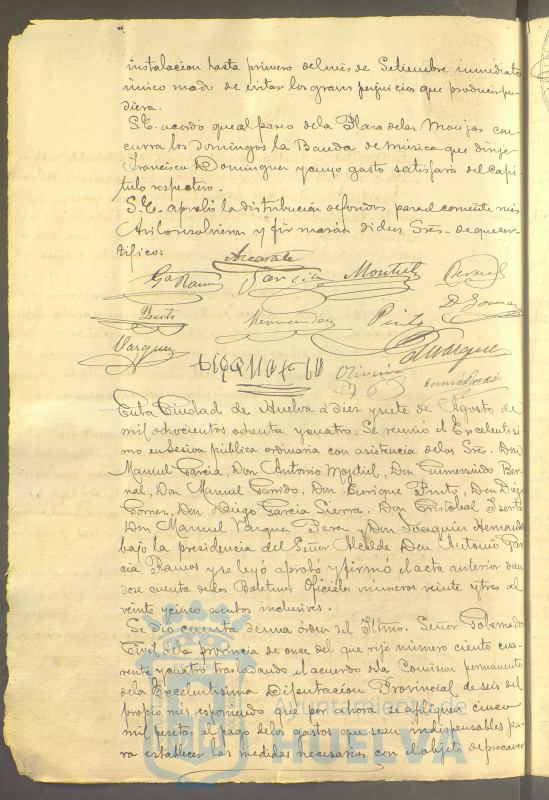 instalacion hasta primero del mes de Setiembre inmediato
único modo de evitar los graves perjuicios que producir pu-
diera.
S.E. acordó que al paseo de la Plaza de las Monjas con-
curra los domingos la Banda de música que dirije
Francisco Dominguez y cuyo gasto satisfará del Capi-
tulo respectivo.
S.E. aprobó la distribución de fondos para el corriente mes
Asi lo resolvieron y firmarán dichos Sres. de que cer-
tifico:
Garcia Montiel Bernal
Hernandez Pinto
Vazquez
Oliveira
En la Ciudad de Huelva á diez y siete de Agosto de
mil ochocientos ochenta y cuatro. Se reunió el Excelentisi-
mo en Sesion pública ordinaria con asistencia de los Sres. Don
Manuel Garcia, Don Antonio Montiel, Don Gumersindo Ber-
nal, Don Manuel Garrido, Don Enrique Pinto, Don Diego
Gomez, Don Diego Garcia Sierra, Don Cristobal Iserte
Don Manuel Vazquez Perez y Don Joaquin Hernandez
bajo la presidencia del Señor Alcalde Don Antonio Gar-
cia Ramos y se leyó aprobó y firmó el acta anterior dan-
dose cuenta de los Boletines Oficiales números veinte y tres al
veinte y cinco ambos inclusives.
Se dió cuenta de una órden del Iltmo. Señor Gobernador
Civil de la provincia de once del que rije número ciento cua-
renta y cuatro trasladando el acuerdo de la Comision permanente
de la Excelentisima Diputacion Provincial de seis del
propio mes esponiendo que por ahora se apliquen cinco
mil pesetas al pago de los gastos que sean indispensables pa-
ra establecer las medidas necesarias con el objeto de precaver
Ayuntamiento de
HUELVA